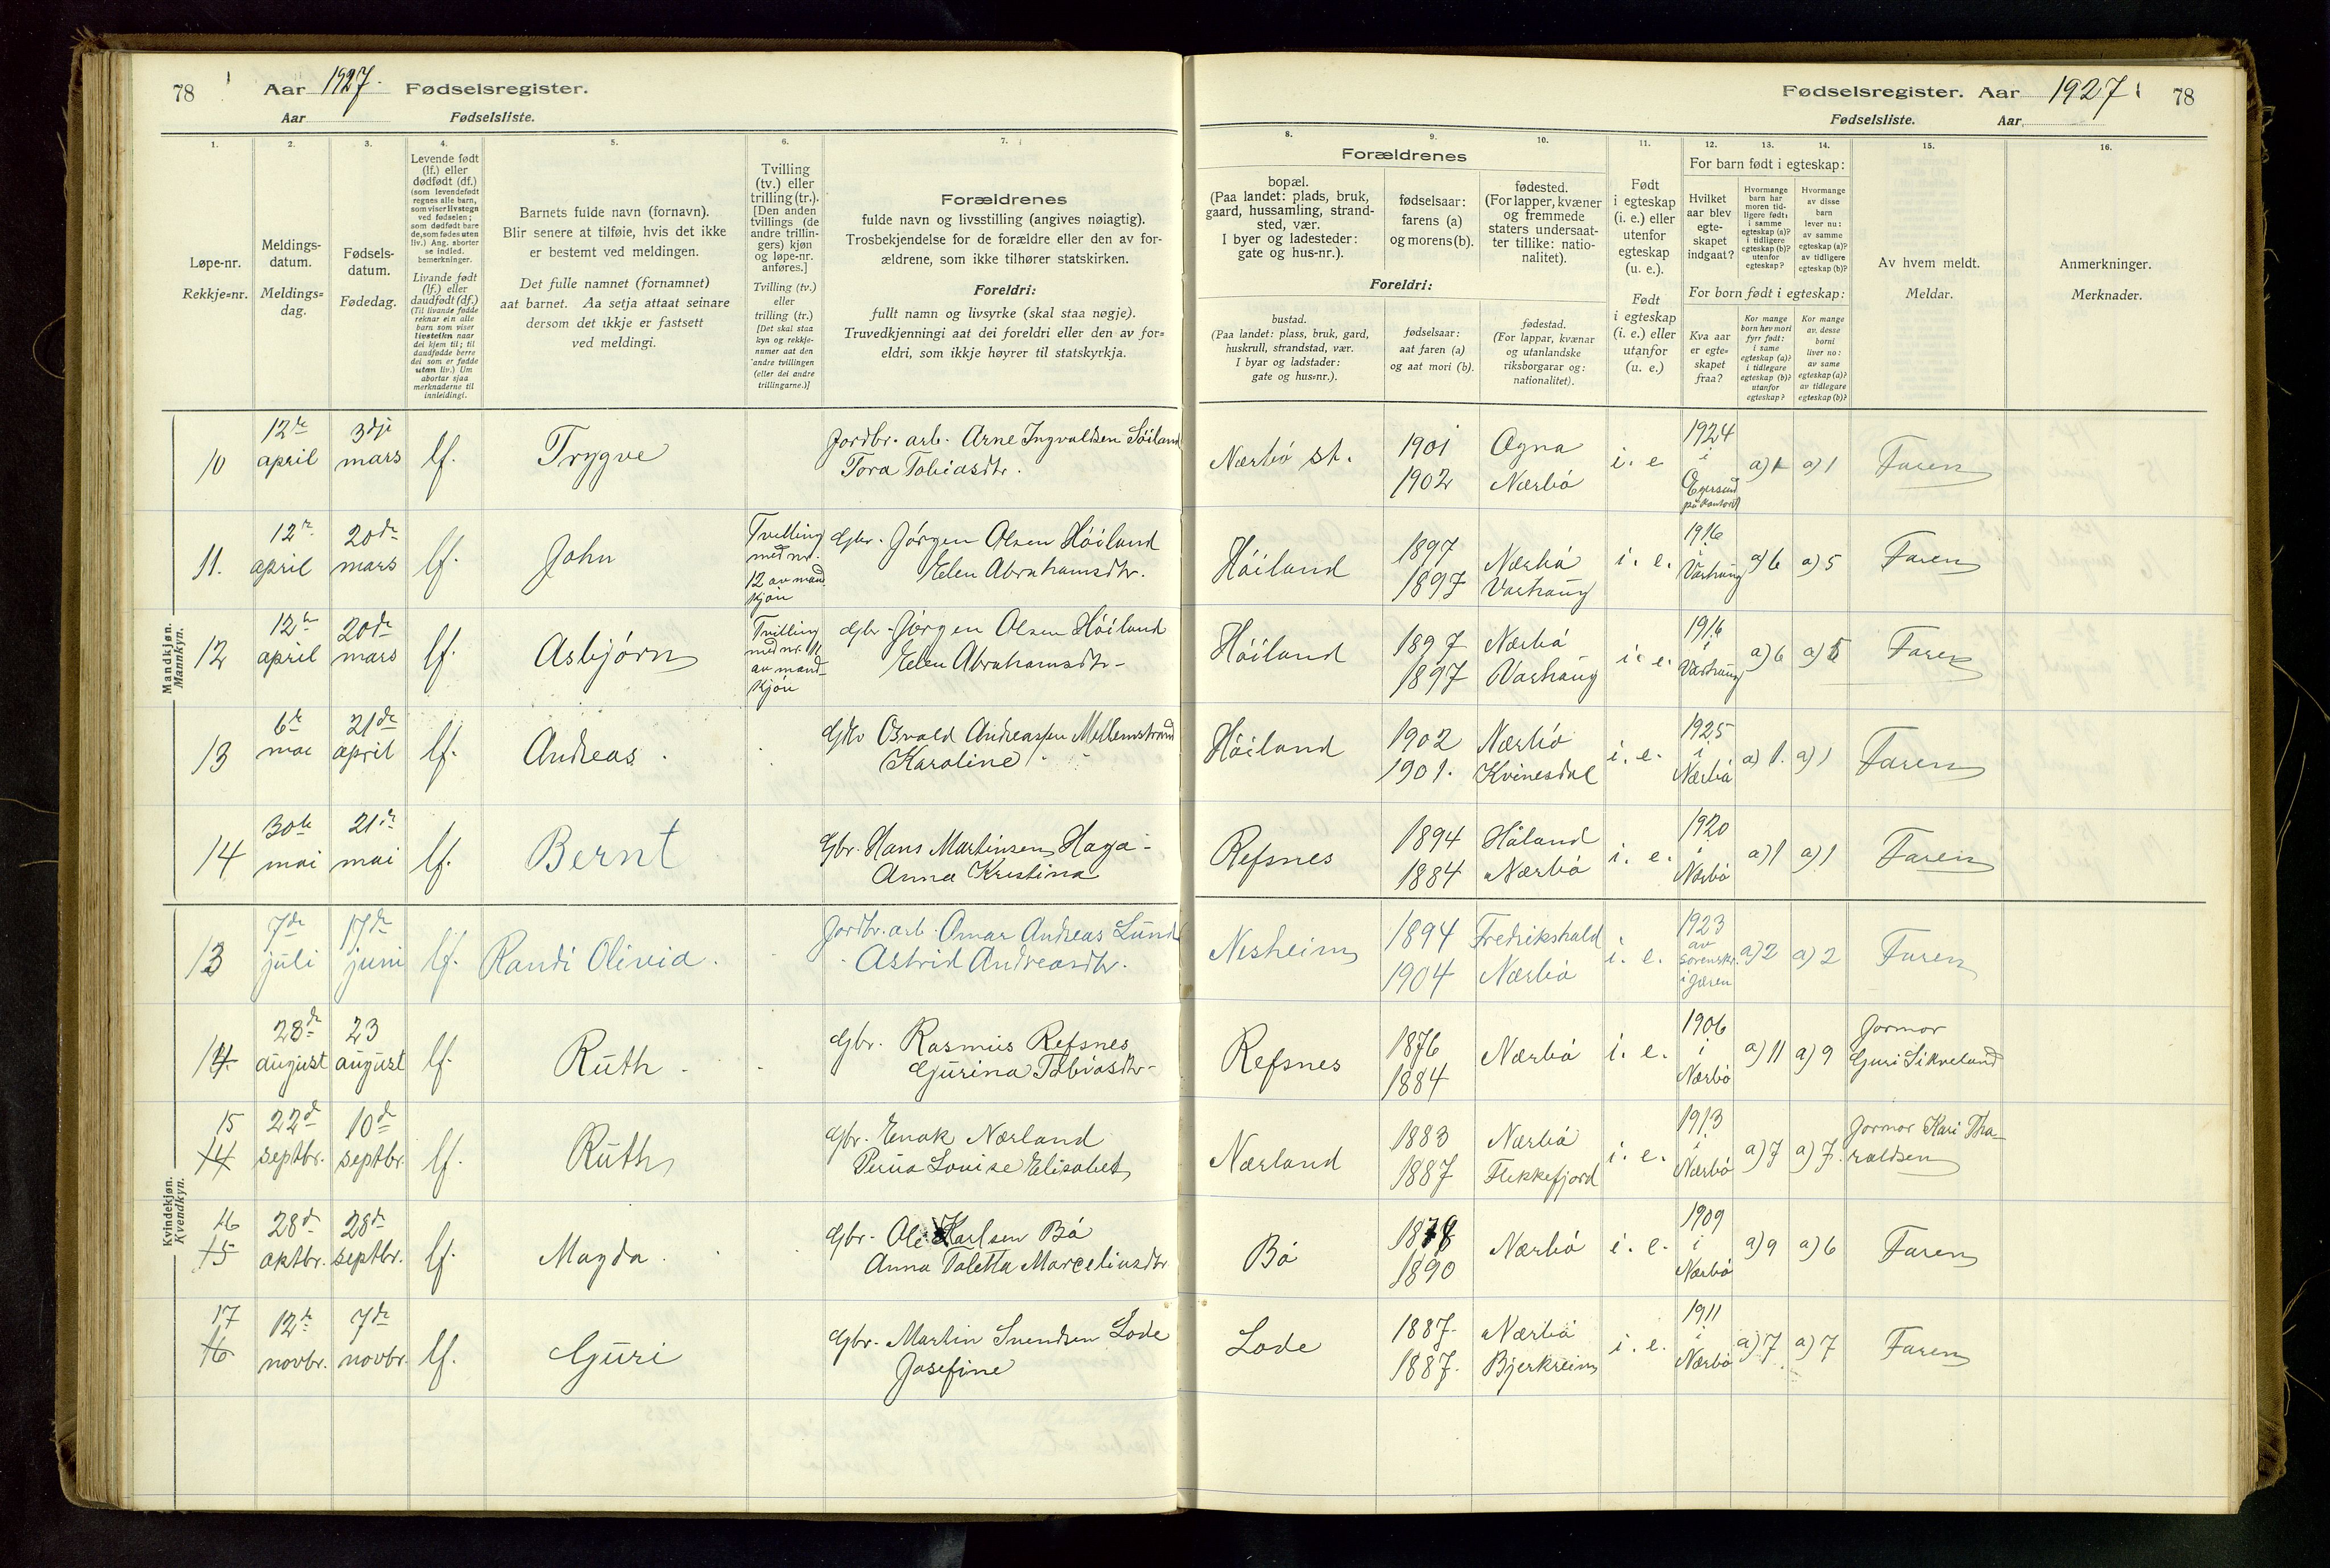 78 Aar 1927. Fødselsregister.
Aar Fødselsliste.
1. 2. 3. 4. 5. 6. 7.
Løpe-nr.
Rekkje=nr.
Meldings-
datum.
Meldings=
dag.
Fødsels-
datum.
Fødedag.
Levende født
(lf.) eller
dødfødt (df.)
(som levendefødt
regnes alle barn,
som viser livstegn
ved fødselen;
som dødfødt bare
de, som fødes uten
liv.) Ang. aborter
se indled.
bemerkninger.
Livande født
(lf.) eller
daudfødt (df.)
(Til livande fødde
reknar ein alle
barn som viser
livsteikn naar
dei kjem til; til
daudfødde berre
dei som er fødde
utan liv.) Um
abortar sjaa
merknaderne til
innleidingi.
Barnets fulde navn (fornavn).
Blir senere at tilføie, hvis det ikke
er bestemt ved meldingen.
Det fulle namnet (fornamnet)
aat barnet. Aa setja attaat seinare
dersom det ikkje er fastsett
ved meldingi.
Tvilling
(tv.) eller
trilling (tr.).
[Den anden
tvillings (de
andre trillin-
gers) kjøn
og løpe-nr.
anføres.]
Tvilling (tv.)
eller
trilling (tr.)
[Det skal staa
kyn og rekkje-
numer aat den
andre tvillingen
(eller dei andre
trillingarne.)]
Forældrenes
fulde navn og livsstilling (angives nøiagtig).
Trosbekjendelse for de forældre eller den av for-
ældrene, som ikke tilhører statskirken.
Foreldri:
fullt namn og livsyrke (skal staa nøgje).
Truvedkjenningi aat dei foreldri eller den av for=
eldri, som ikkje høyrer til statskyrkja.
Mandkjøn.
Mannkyn.
10 12te april 3dje mars lf. Trygve Jordbr. arb. Arne Ingvaldsen Söiland
Tora Tobiasdtr.
11. 12te april 20de mars lf. John Tvilling med nr. 12 av mandkjön Gbr. Jörgen Olsen Höiland
Elen Abrahamsdtr.
12 12te april 20de mars lf. Asbjörn Tvilling med nr. 11 av mand-kjön Gbr. Jörgen Olsen Höiland
Elen Abrahamsdtr.
13 6te mai 21de april lf. Andreas. Gbr Osvald Andreassen Mellemstrand
Karoline
14 30te mai 21de mai lf. Bernt Gbr. Hans Martinsen Haga
Anna Kristina
Kvindekjøn.
Kvendkyn.
13 7de juli 17de juni lf. Randi Olivia. Jordbr. arb. Omar Andreas Lunde
Astrid Andreasdtr.
14 28de august 23 august lf. Ruth Gbr. Rasmus Refsnes
Gurina Tobiasdtr.
15 14 22de septbr. 10de septbr. lf. Ruth Gbr. Enok Nærland
Louise Elisabet
16 15 28de oktbr. 28de septbr. lf. Magda. Gbr. Ole Karlsen Bö
Anna Taletta Marceliusdtr
17 16 12te novbr. 7de novbr. lf. Guri Gbr. Martin Svendsen Lode
Josefine
Fødselsregister. Aar 1927. 78
Fødselsliste. Aar
8. 9. 10. 11. 12. 13. 14. 15. 16.
Forældrenes
bopæl.
(Paa landet: plads, bruk,
gaard, hussamling, strand-
sted, vær.
I byer og ladesteder:
gate og hus-nr.).
fødselsaar:
farens (a)
og morens (b).
fødested.
(For lapper, kvæner
og fremmede
staters undersaat-
ter tillike: natio-
nalitet).
Foreldri:
bustad.
(Paa landet: plass, bruk, gard,
huskrull, strandstad, vær.
I byar og ladstader:
gate og hus=nr.).
fødselsaar:
aat faren (a)
og aat mori (b).
fødestad.
(For lappar, kvænar
og utanlandske
riksborgarar og:
nationalitet).
Født
i egteskap
(i. e.) eller
utenfor
egteskap
(u. e.).
Født
i egteskap
(i. e.) eller
utanfor
(u. e.)
For barn født i egteskap:
Hvilket
aar blev
egte-
skapet
indgaat?
Hvormange
barn har
moren tid-
ligere født:
i samme
egteskap (a)?
i tidligere
egteskap (b)?
utenfor
egteskap?
Hvormange
av disse
barn
lever nu:
av samme
egteskap (a)?
av tidligere
egteskap (b)?
For born født i egteskap:
Kva aar
er egte=
skapet
fraa?
Kor mange
born hev mori
fyrr født:
i same
egteskap (a)?
i tidlegare
egteskap (b)?
utanfor
egteskap?
Kor mange
av desse
borni
liver no:
av same
egteskap (a)?
av tidlegare
egteskap (b)?
Av hvem meldt.
Meldar.
Anmerkninger.
Merknader.
Nærbö st. 1901 1902 Ogna Nærbö i. e. 1924 i Egersund a) 1 a) 1 Faren
Höiland 1897 1897 Nærbö Varhaug i. e. 1916 i Varhaug a) 6 a) 5 Faren
Höiland 1897 1897 Nærbö Varhaug i. e. 1916 i Varhaug a) 6 a) 5 Faren
Höiland 1902 1901. Nærbö Kvinesdal i. e. 1925 i Nærbö a) 1. a) 1 Faren
Refsnes 1894 1884 Håland Nærbö i. e. 1920 i Nærbö a) 1 a) 1 Faren
Nesheim 1894 1904 Fredrikshald Nærbö i. e. 1923 av sorenskr. i Jæren a) 2 a) 2 Faren
Refsnes 1876 1884 Nærbö i. e. 1906 i Nærbö a) 11 a) 9 Jormor
Guri Sikveland
Nærland 1883 1887 Nærbö Flekkefjord i. e. 1913 i Nærbö a) 7 a) 7. Jormor Kari Tha-
raldsen
Bö 1890 Nærbö i. e. 1909 i Nærbö a) 9 a) 6 Faren
Lode 1887. 1887. Nærbö Bjerkreim i. e. 1911 i Nærbö a) 7 a) 7 Faren